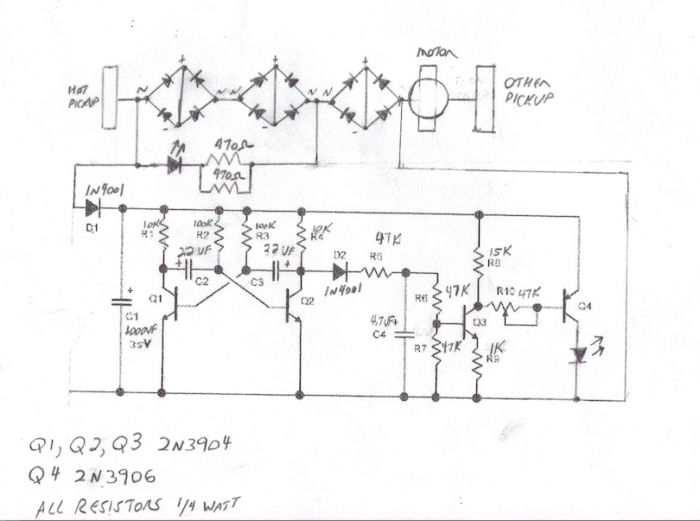 MOTOR
HOT
PICKUP
OTHER
PICKUP
+
+
+
~
~ ~
~ ~
-
-
-
470Ω
470Ω
1N4001
D1
10K
R1
100K
R2
100K
R3
10K
R4
47K
22UF
+
C2
22UF
+
C3
D2
1N4001
R5
15K
R8
Q1
Q2
+
C1
1000UF
35V
R6
47K
R10 47K
Q3
Q4
4.7UF+
C4
R7
47K
1K
R9
Q1, Q2, Q3 2N3904
Q4 2N3906
ALL RESISTORS 1/4 WATT